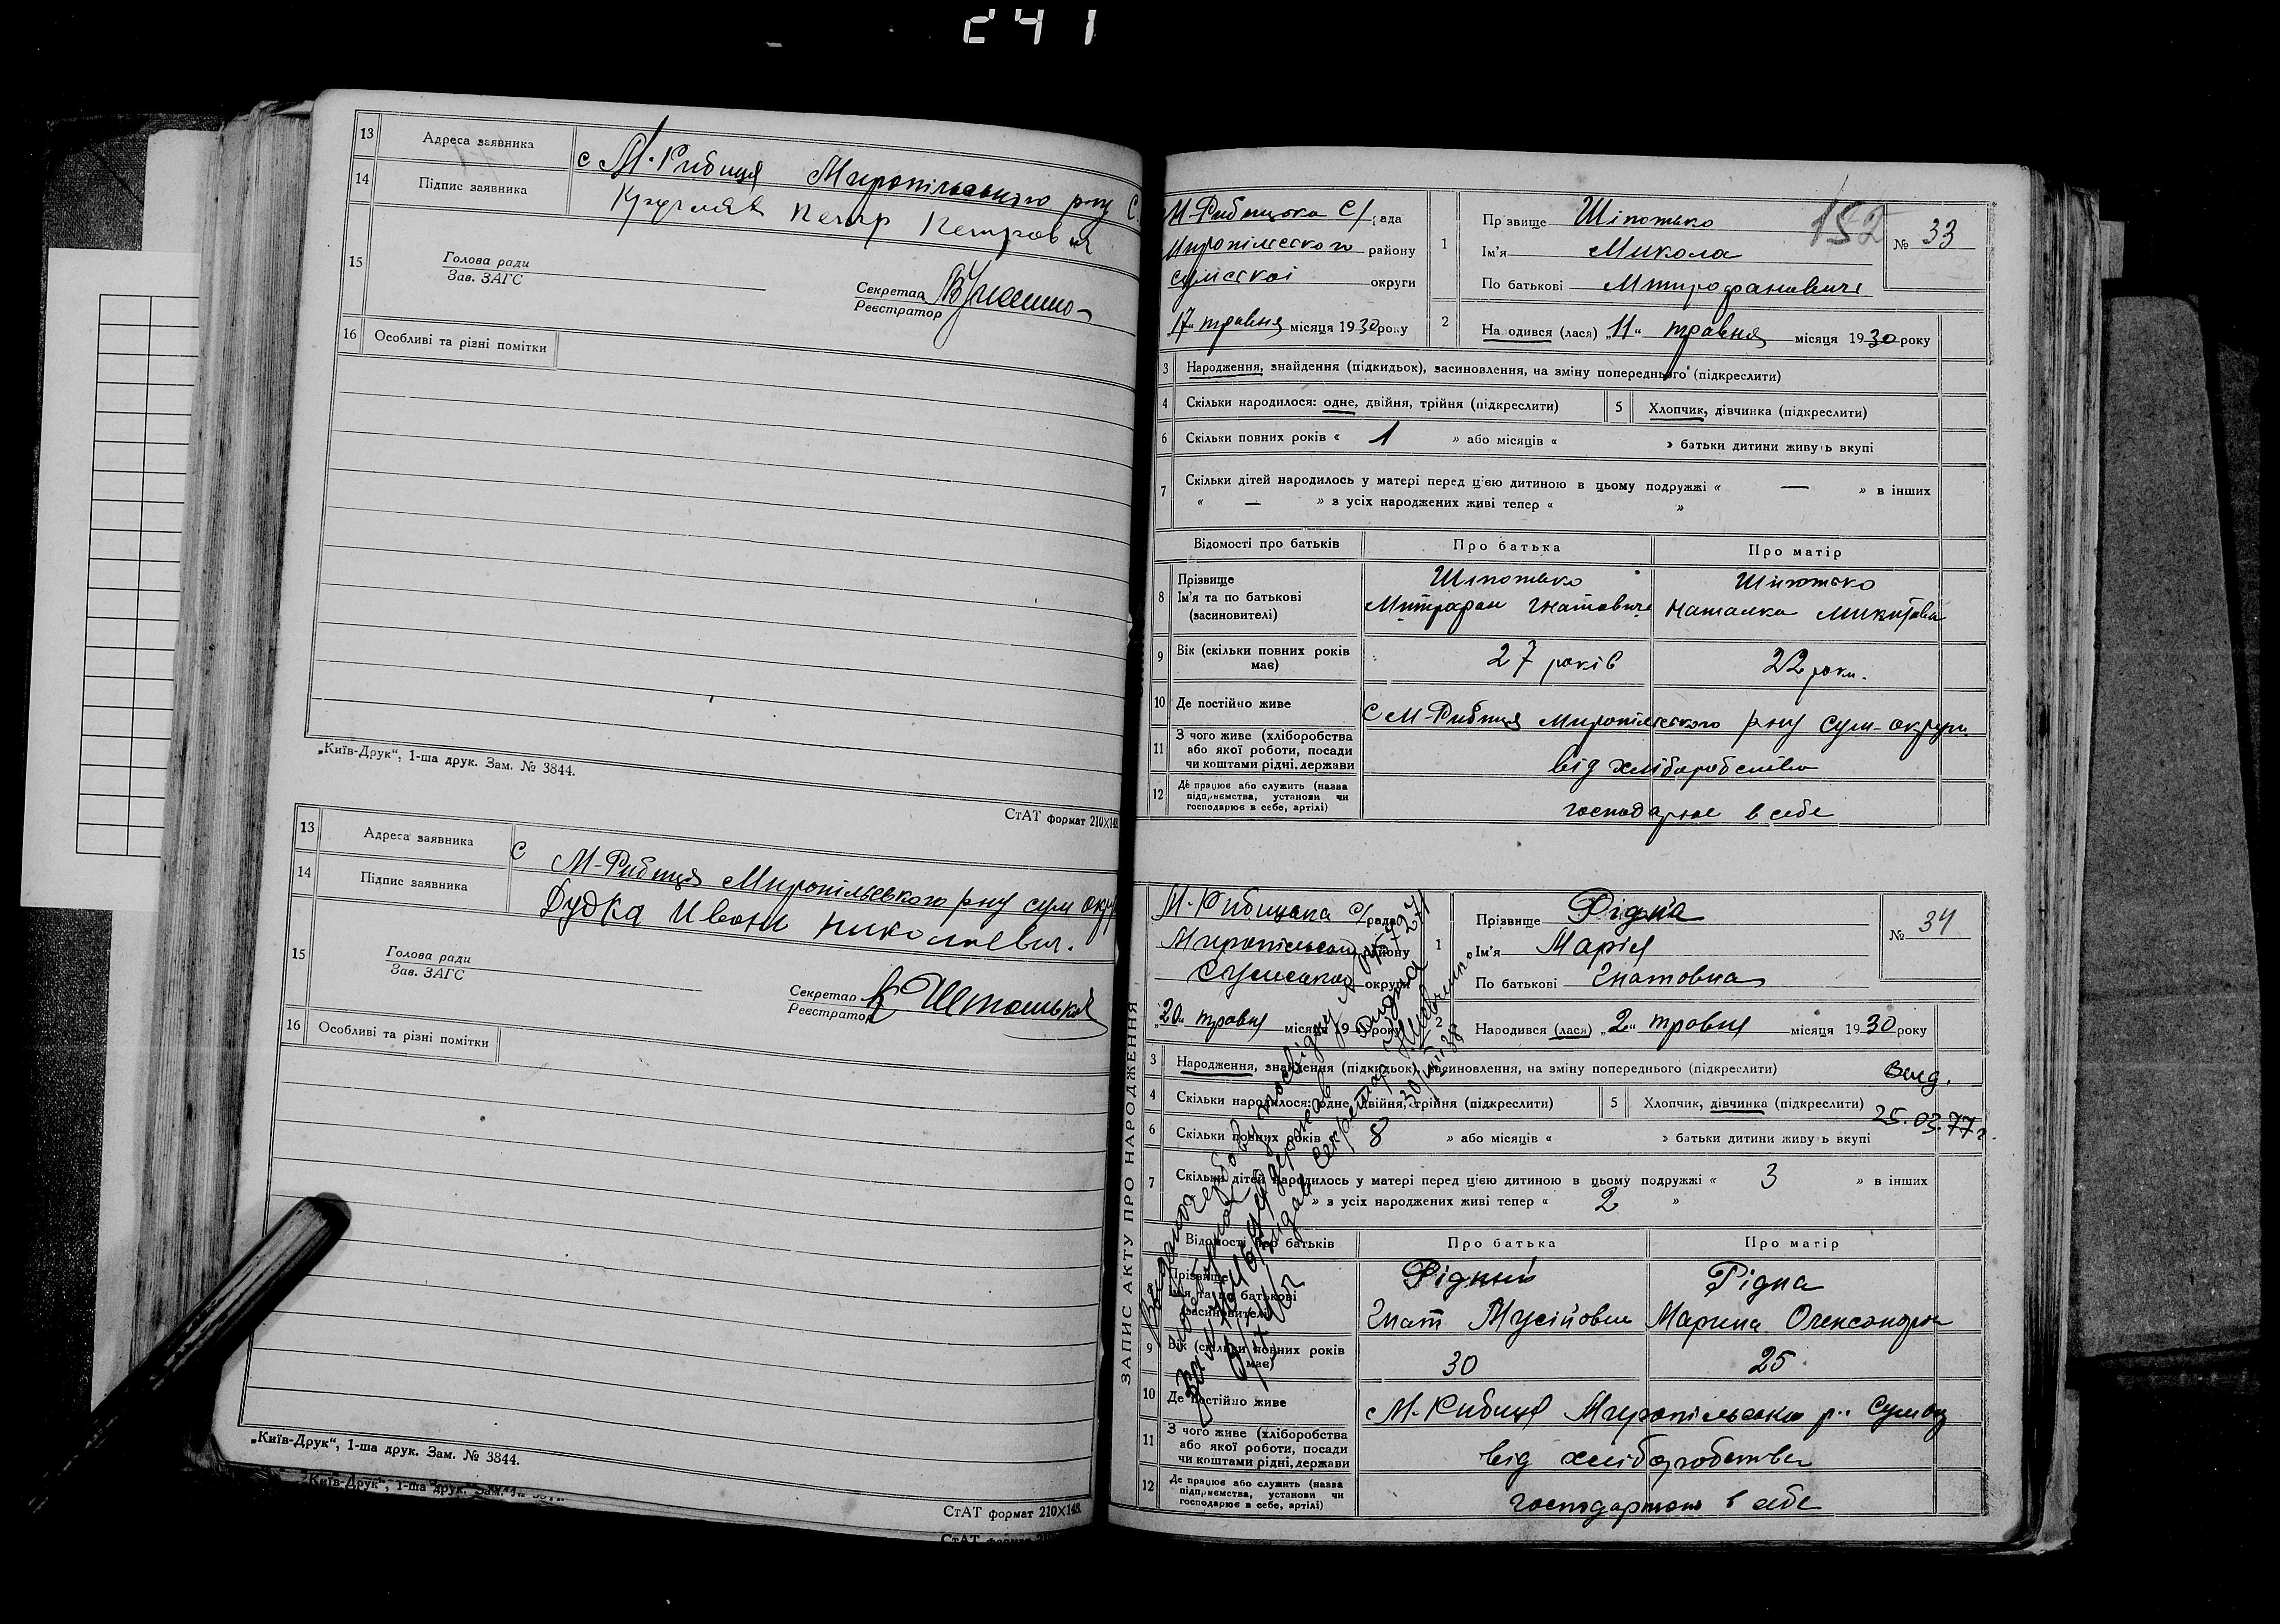 241
13 Адреса заявника с М-Рибиця Миропільського р-ну С.
14 Підпис заявника Кругляк Петр Петрович
15 Голова ради
Зав. ЗАГС
Секретар
Реєстратор
16 Особливі та різні помітки
„Київ-Друк“, 1-ша друк. Зам. № 3844.
СтАТ формат 210×148.
13 Адреса заявника с М-Рибиця Миропільського р-ну сум окр
14 Підпис заявника Дудка Иван Николаевич.
15 Голова ради
Зав. ЗАГС
Секретар
Реєстратор
16 Особливі та різні помітки
„Київ-Друк“, 1-ша друк. Зам. № 3844.
СтАТ формат 210×148.
„Київ-Друк“, 1-ша друк. Зам.
СтАТ формат
152
М-Рибицька С/рада
Миропільского району
сумскої округи
„17“ травня місяця 1930 року
№ 33
1 Прізвище Шіпотько
Ім'я Микола
По батькові Митрофанович
2 Народився (лася) „11“ травня місяця 1930 року
3 Народження, знайдення (підкидьок), засиновлення, на зміну попереднього (підкреслити)
4 Скільки народилося: одне, двійня, трійня (підкреслити) 5 Хлопчик, дівчинка (підкреслити)
6 Скільки повних років « 1 » або місяців « » батьки дитини живуть вкупі
7 Скільки дітей народилось у матері перед цією дитиною в цьому подружжі « — » в інших
« — » в усіх народжених живі тепер « »
Відомості про батьків Про батька Про матір
8 Прізвище Шіпотько Шіпотько
Ім'я та по батькові Митрофан Гнатович Наталка Микитовна
(засновителі)
9 Вік (скільки повних років має) 27 років 22 роки.
10 Де постійно живе С М-Рибиця Миропільського р-ну Сум-округи.
11 З чого живе (хліборобства
або якої роботи, посади
чи коштами рідні, держави від хліборобства
12 Де працює або служить (назва
підприємства, установи чи
господарює в себе, артілі) господарює в себе
ЗАПИС АКТУ ПРО НАРОДЖЕННЯ
М-Рибицька С/рада
Миропільської району
Сумської округи
„20“ травня місяця 19 року
№ 34
1 Прізвище Рідна
Ім'я Марія
По батькові Гнатовна
2 Народився (лася) „2“ травня місяця 1930 року
3 Народження, знайдення (підкидьок), засиновлення, на зміну попереднього (підкреслити)
4 Скільки народилося: одне, двійня, трійня (підкреслити) 5 Хлопчик, дівчинка (підкреслити)
25.03.77 г.
6 Скільки повних років « 8 » або місяців « » батьки дитини живуть вкупі
7 Скільки дітей народилось у матері перед цією дитиною в цьому подружжі « 3 » в інших
» в усіх народжених живі тепер « 2 »
Відомості про батьків Про батька Про матір
8 Прізвище Рідний Рідна
Ім'я та по батькові Гнат Мусійович Марина Олександров
засиновителі
9 Вік (скільки повних років має) 30 25
10 Де постійно живе М-Рибиця Миропільсько р..
11 З чого живе (хліборобства
або якої роботи, посади
чи коштами рідні, держави від хліборобства
12 Де працює або служить (назва
підприємства, установи чи
господарює в себе, артілі) господарюють в себе